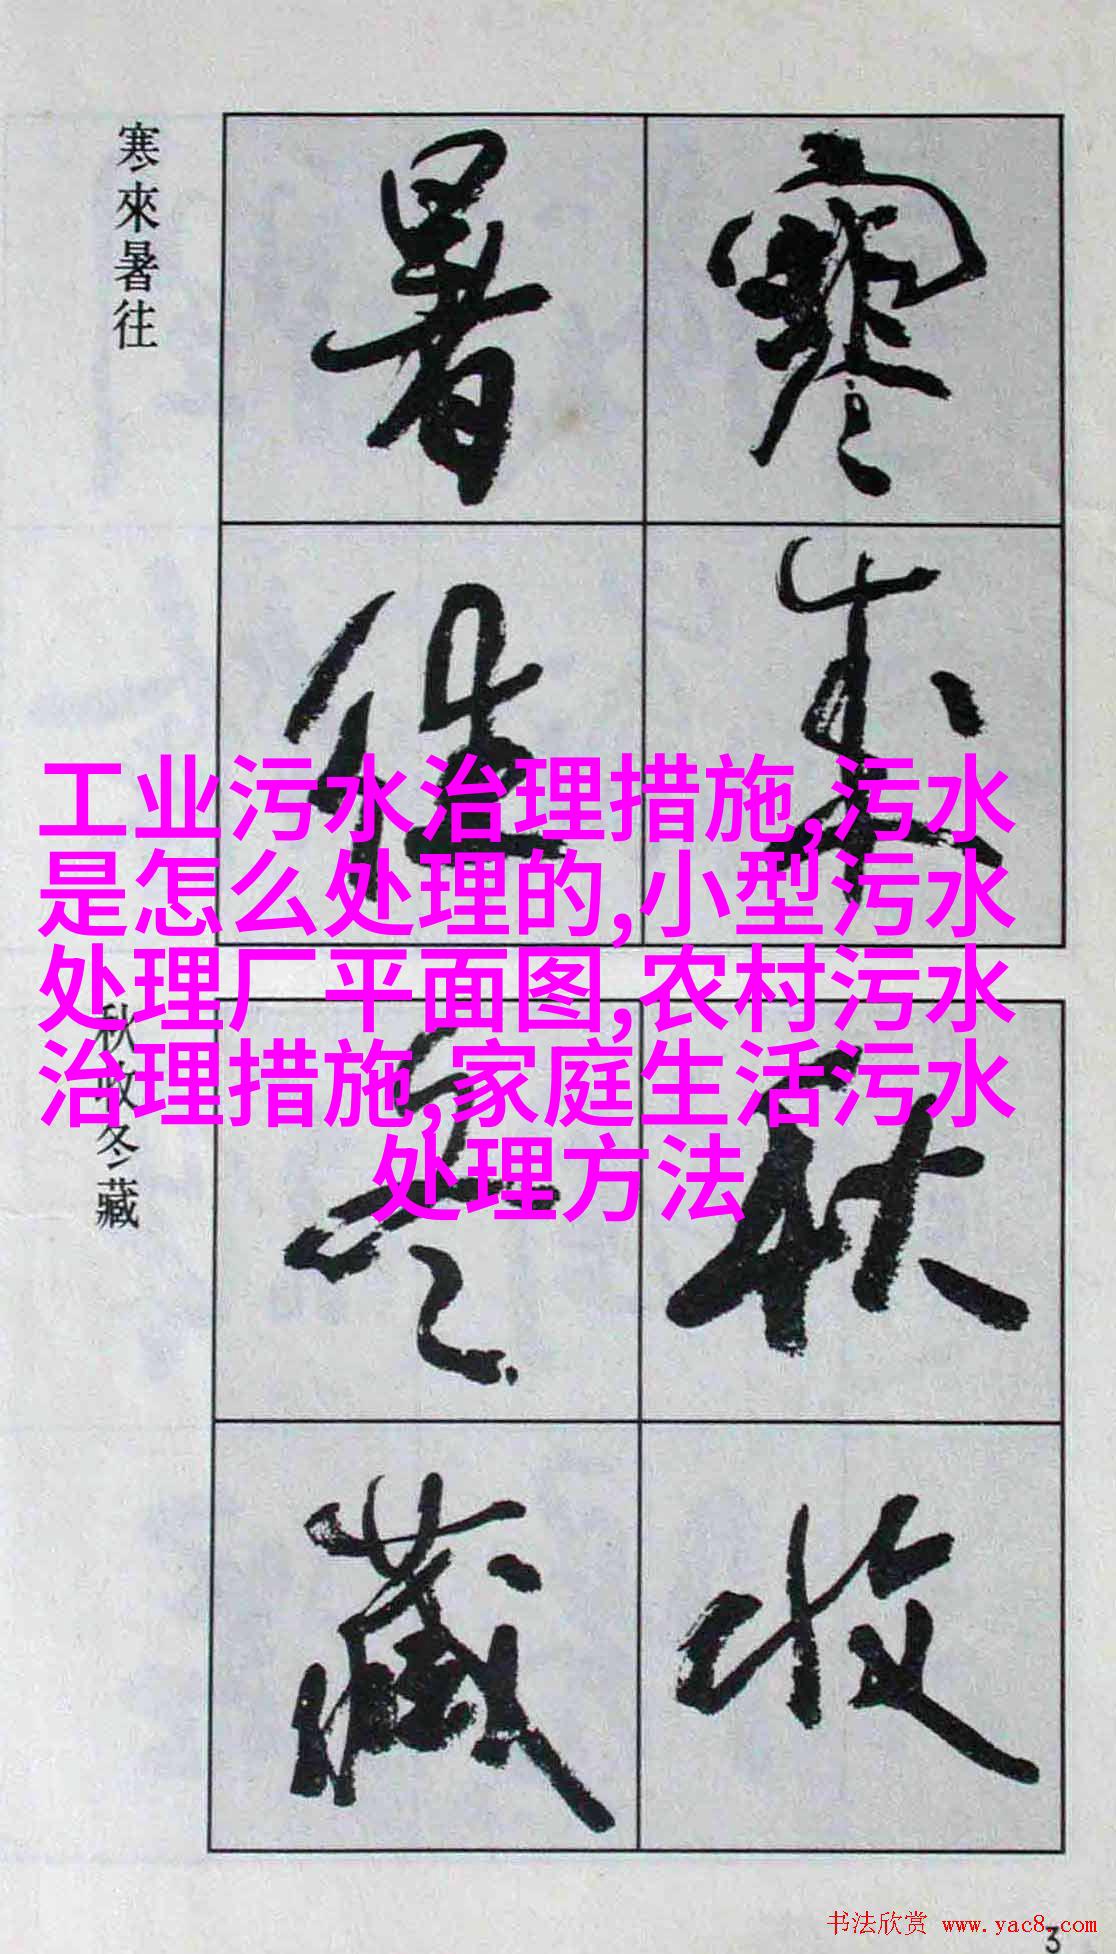 寒來暑往
寒來
暑往
工业污水治理措施,污水
是怎么处理的,小型污水
处理厂平面图,农村污水
治理措施,家庭生活污水
处理方法
秋收冬藏
秋收
冬藏
书法欣赏 www.yac8.com
3